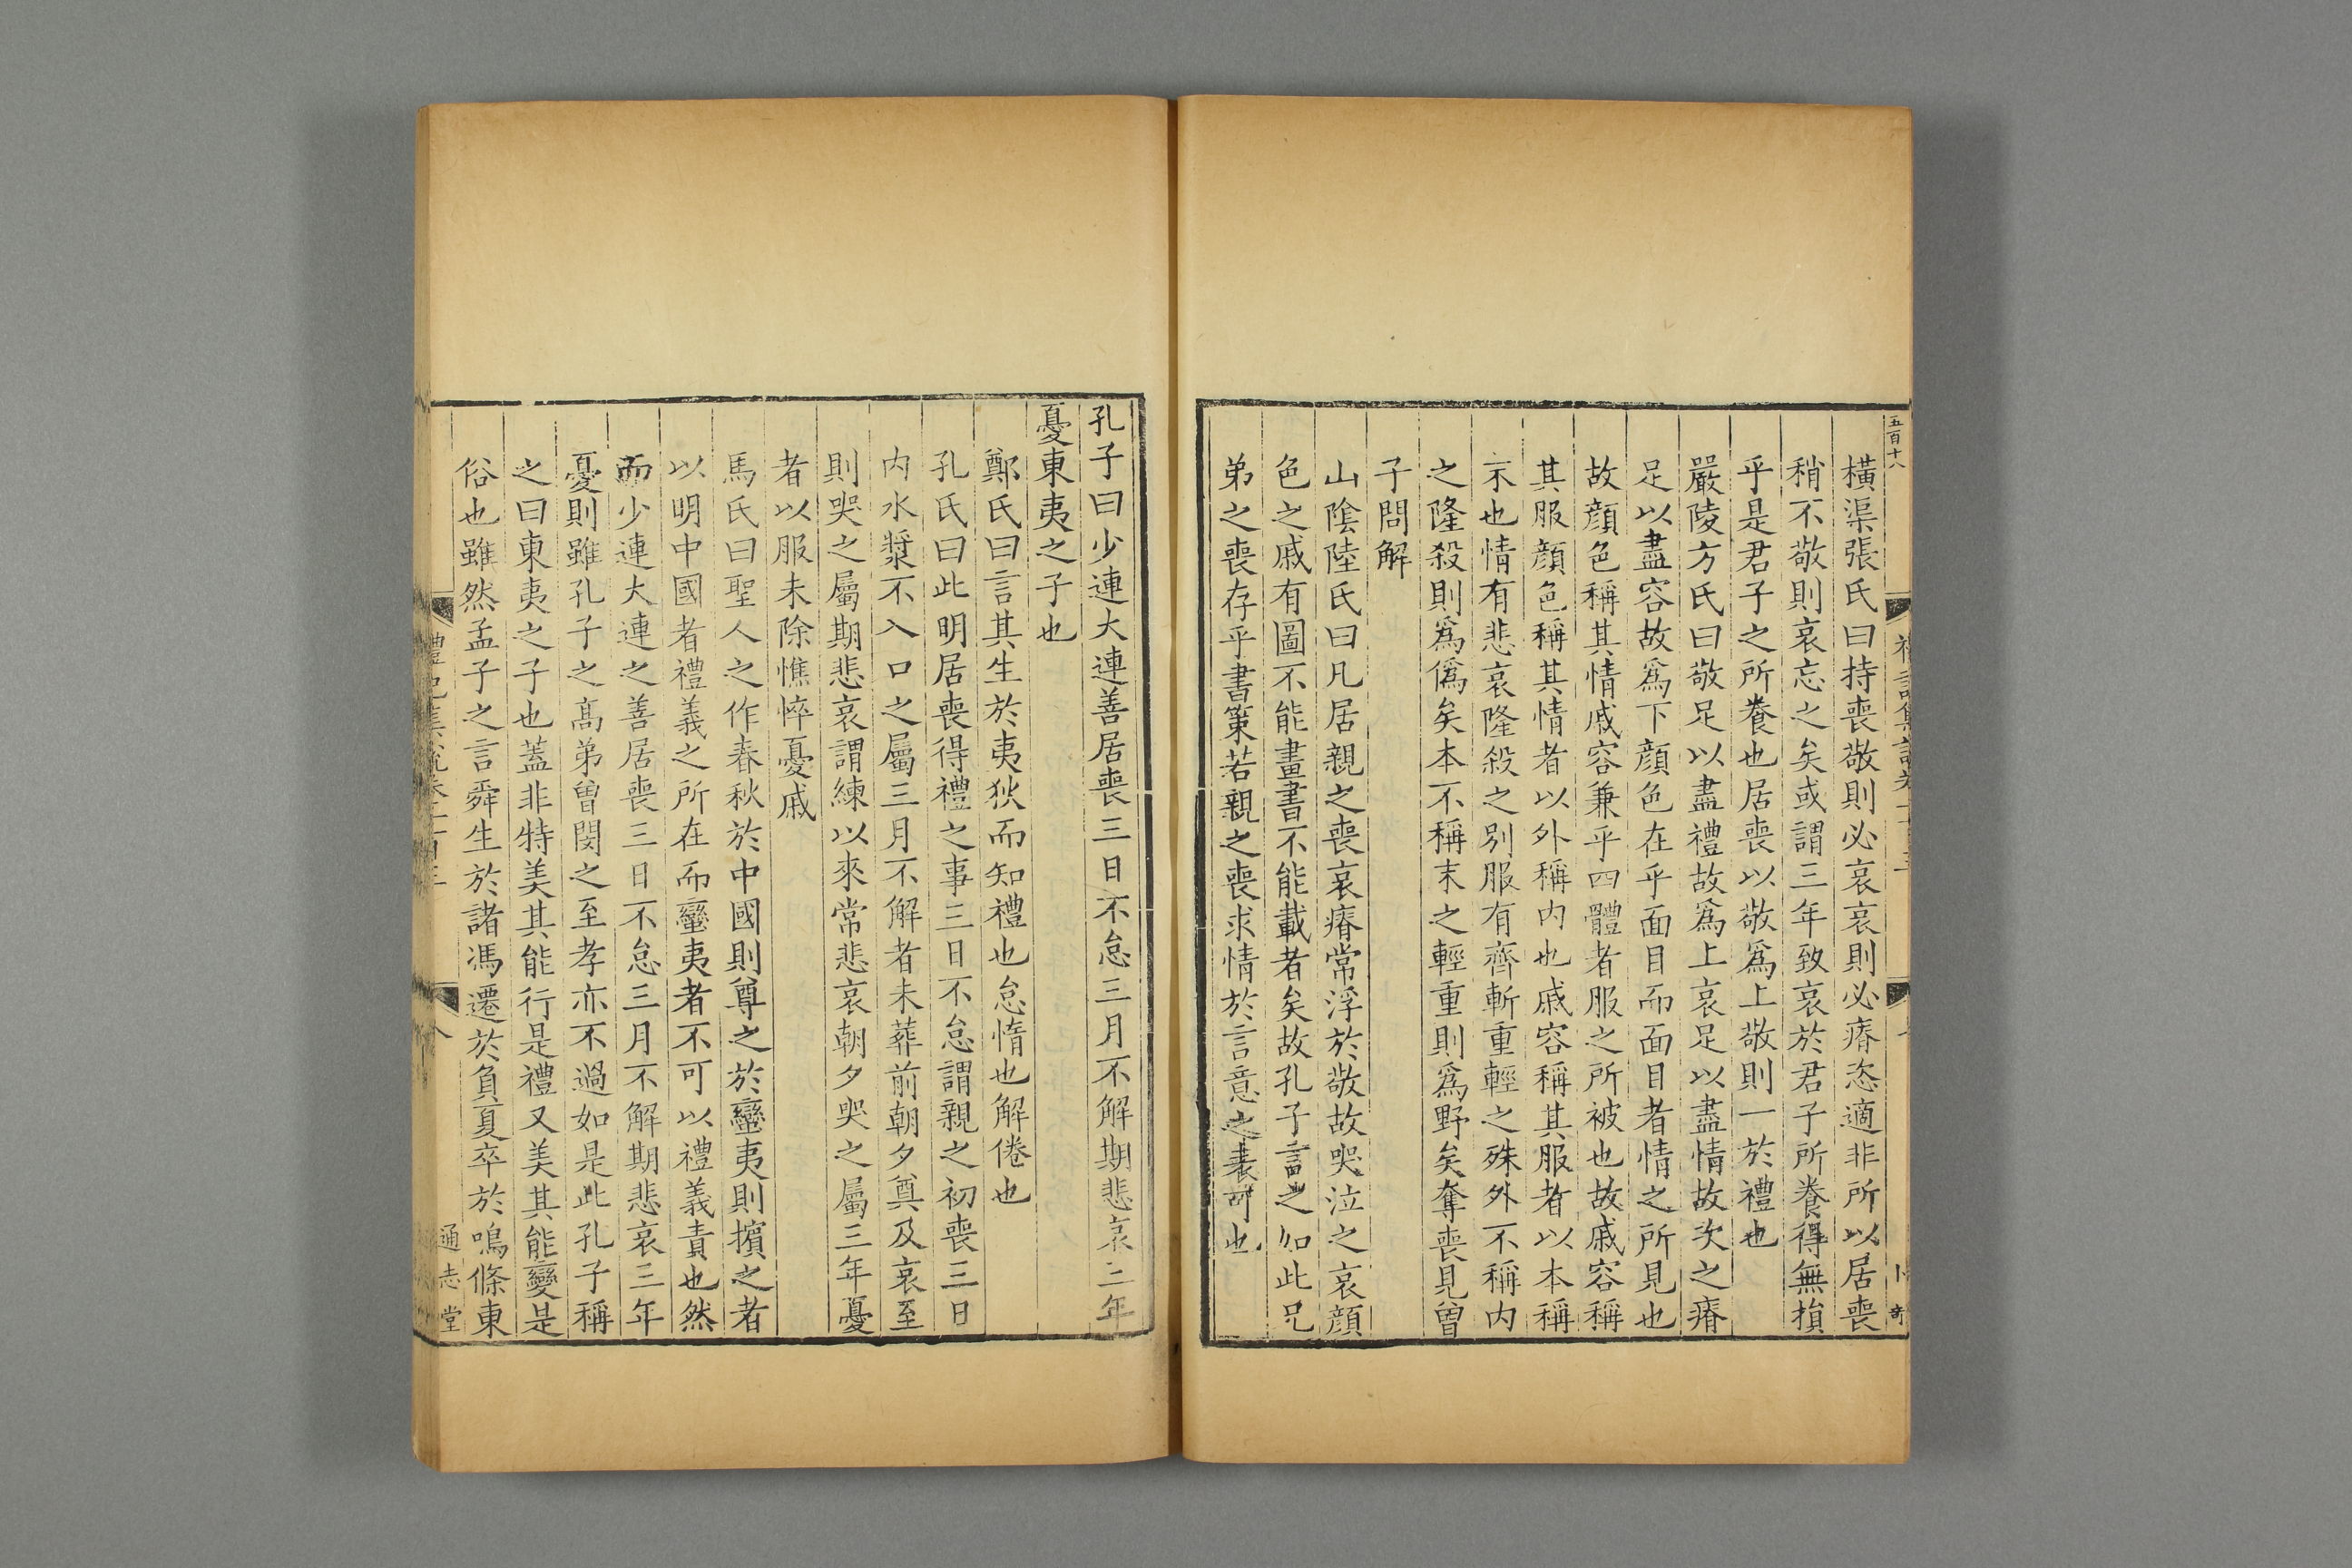 五百十八
橫渠張氏曰持喪敬則必哀哀則必瘠恣適非所以居喪
稍不敬則哀忘之矣或謂三年致哀於君子所養得無損
乎是君子之所養也居喪以敬爲上敬則一於禮也
嚴陵方氏曰敬足以盡禮故爲上哀足以盡情故次之瘠
足以盡容故爲下顔色在乎面目而面目者情之所見也
故顔色稱其情戚容兼乎四體者服之所被也故戚容稱
其服顔色稱其情者以外稱内也戚容稱其服者以本稱
末也情有悲哀隆殺之別服有齊斬重輕之殊外不稱内
之隆殺則爲僞矣本不稱末之輕重則爲野矣奪喪見曾
子問解
山陰陸氏曰凡居親之喪哀瘠常浮於敬故哭泣之哀顔
色之戚有圖不能畫書不能載者矣故孔子言之如此兄
弟之喪存乎書策若親之喪求情於言意之表可也
孔子曰少連大連善居喪三日不怠三月不解期悲哀三年
憂東夷之子也
鄭氏曰言其生於夷狄而知禮也怠惰也解倦也
孔氏曰此明居喪得禮之事三日不怠謂親之初喪三日
内水漿不入口之屬三月不解者未葬前朝夕奠及哀至
則哭之屬期悲哀謂練以來常悲哀朝夕哭之屬三年憂
者以服未除憔悴憂戚
馬氏曰聖人之作春秋於中國則尊之於蠻夷則擯之者
以明中國者禮義之所在而蠻夷者不可以禮義責也然
而少連大連之善居喪三日不怠三月不解期悲哀三年
憂則雖孔子之高弟曾閔之至孝亦不過如是此孔子稱
之曰東夷之子也蓋非特美其能行是禮又美其能變是
俗也雖然孟子之言舜生於諸馮遷於負夏卒於鳴條東
禮記集說卷一百三 八 通志堂